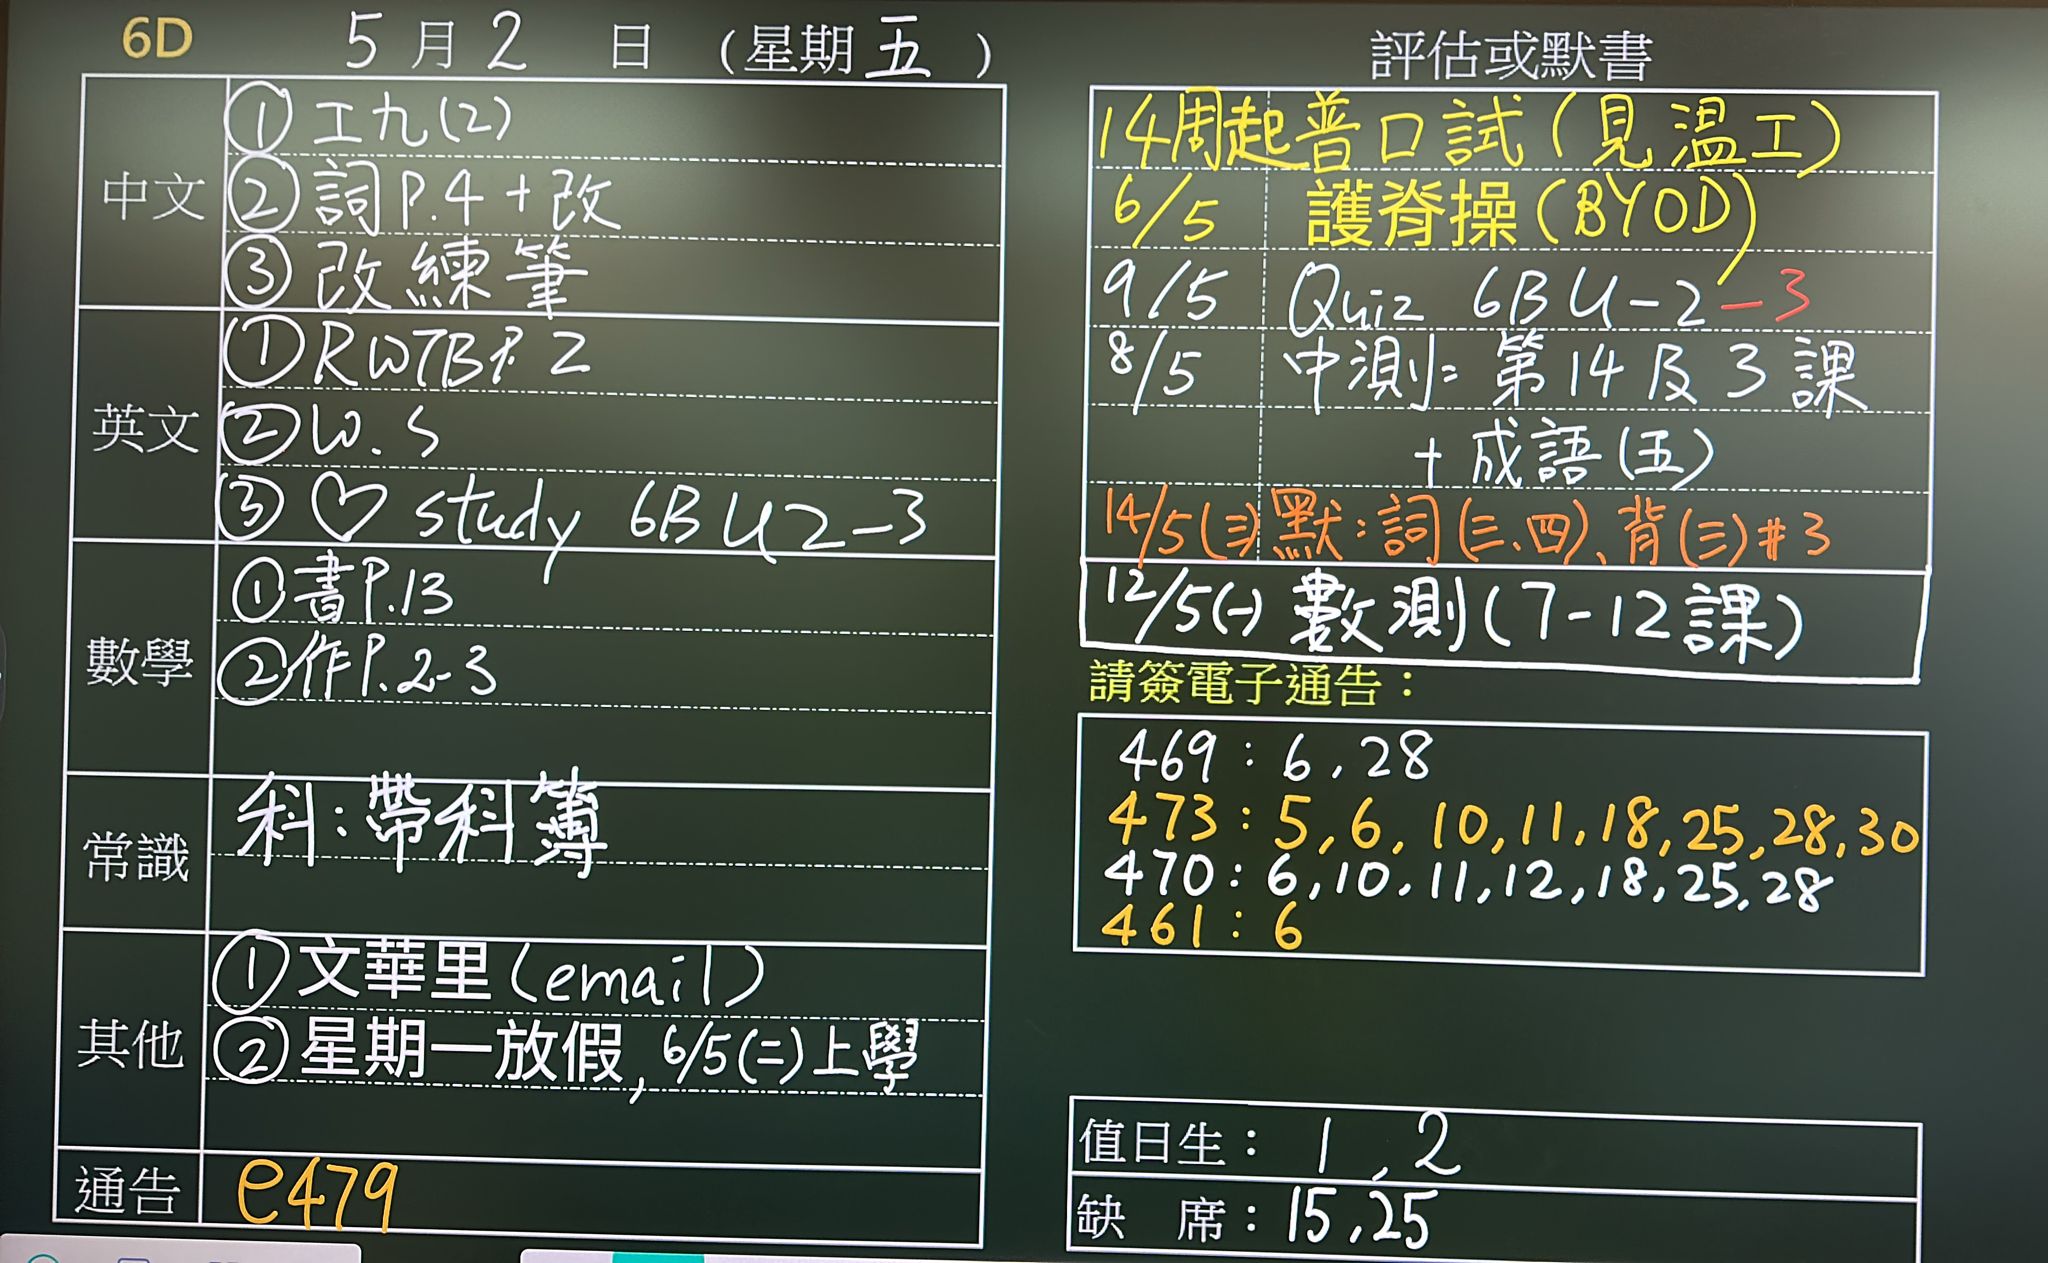 6D 5月2日（星期五）
中文
① 工九(2)
② 詞P.4+改
③ 改練筆
英文
① RWTB P.2
② W.S
③ ♡ study 6B U2-3
數學
① 書P.13
② 作P.2-3
常識
科:帶科簿
其他
① 文華里(email)
② 星期一放假, 6/5(二)上學
通告
e479
評估或默書
14周起普口試(見溫工)
6/5 護脊操(BYOD)
9/5 Quiz 6B U-2-3
8/5 中測: 第14及3課
+成語(五)
14/5(三)默:詞(三、四)、背(三)#3
12/5(一) 數測(7-12課)
請簽電子通告：
469:6,28
473:5,6,10,11,18,25,28,30
470:6,10,11,12,18,25,28
461:6
值日生： 1,2
缺 席：15,25